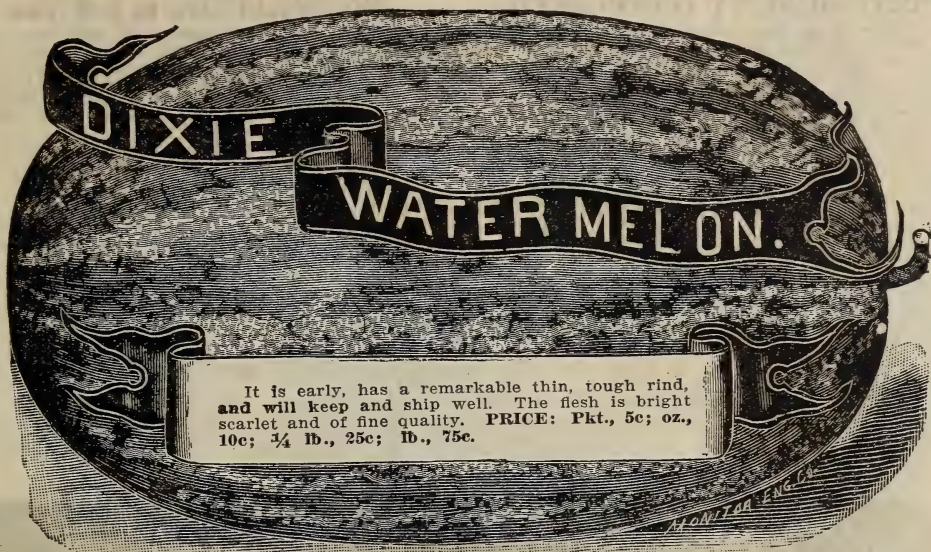 DIXIE
WATER MELON.
It is early, has a remarkable thin, tough rind,
and will keep and ship well. The flesh is bright
scarlet and of fine quality. PRICE: Pkt., 5c; oz.,
10c; ¾ lb., 25c; lb., 75c.
MONITOR ENG. CO.